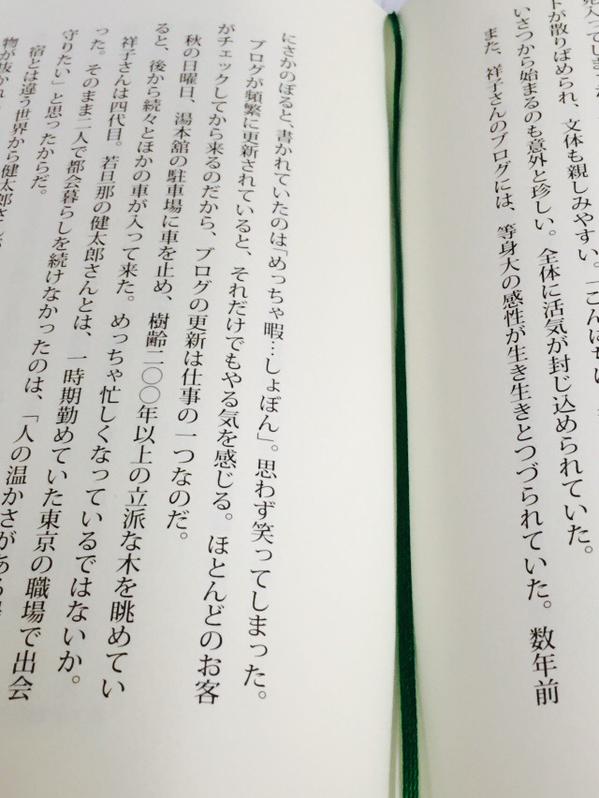 入ってしま
トが散りばめられ、文体も親しみやすい。「こんにちは、
いさつから始まるのも意外と珍しい。全体に活気が封じ込められていた。
また、祥子さんのブログには、等身大の感性が生き生きとつづられていた。数年前
にさかのぼると、書かれていたのは「めっちゃ暇…しょぼん」。思わず笑ってしまった。
ブログが頻繁に更新されていると、それだけでもやる気を感じる。ほとんどのお客
がチェックしてから来るのだから、ブログの更新は仕事の一つなのだ。
秋の日曜日、湯本舘の駐車場に車を止め、樹齢二〇〇年以上の立派な木を眺めてい
ると、後から続々とほかの車が入って来た。めっちゃ忙しくなっているではないか。
祥子さんは四代目。若旦那の健太郎さんとは、一時期勤めていた東京の職場で出会
った。そのまま二人で都会暮らしを続けなかったのは、「人の温かさがある
守りたい」と思ったからだ。
宿とは違う世界から健太郎さん
物が抜かれ